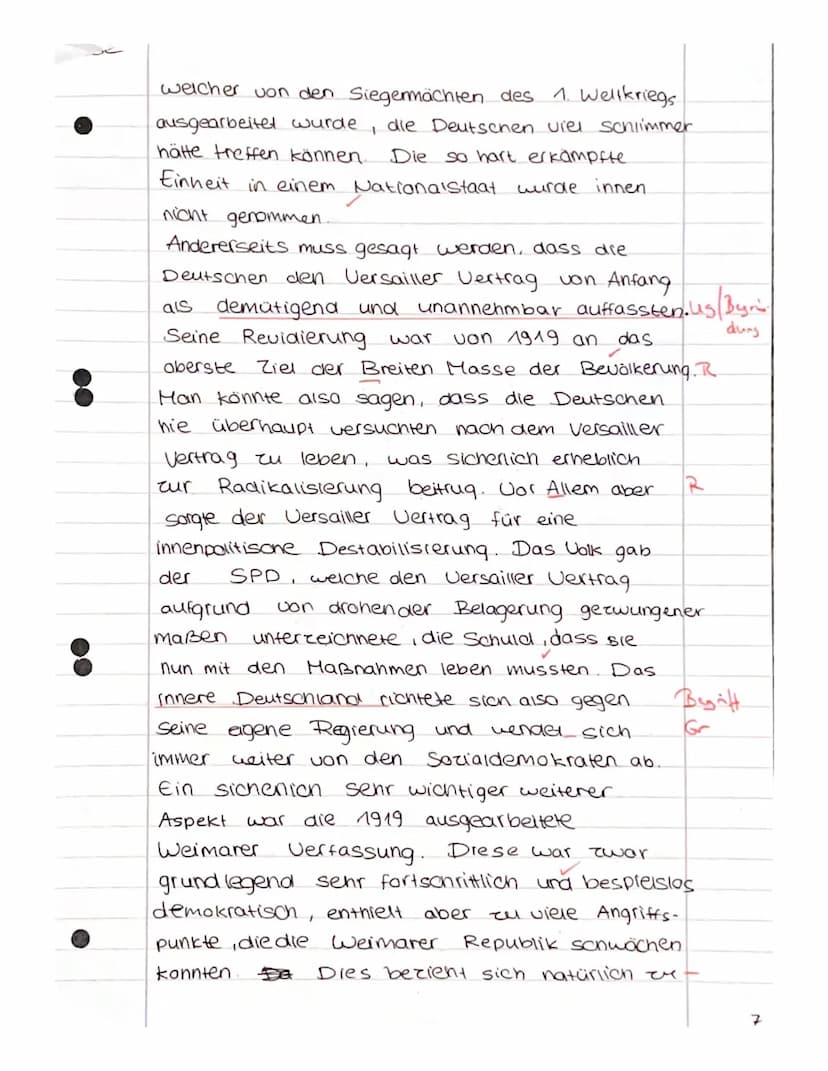 welcher von den Siegermächten des 1. Weltkriegs
ausgearbeitet wurde, die Deutschen viel schlimmer
hätte treffen können. Die so hart erkämpfte
Einheit in einem Nationalstaat wurde innen
nicht genommen.
Andererseits muss gesagt werden, dass die
Deutschen den Versailler Vertrag von Anfang
als demütigend und unannehmbar auffassten. Us/Begrün-
dung
Seine Revidierung war von 1919 an das
oberste Ziel der Breiten Masse der Bevölkerung. R
Man könnte also sagen, dass die Deutschen
nie überhaupt versuchten nach dem Versailler
Vertrag zu leben, was sicherlich erheblich
zur Radikalisierung beitrug. Vor Allem aber R
sorgte der Versailler Vertrag für eine
innenpolitische Destabilisierung. Das Volk gab
der SPD, welche den Versailler Vertrag
aufgrund von drohender Belagerung gezwungener
maßen unterzeichnete, die Schuld, dass sie
nun mit den Maßnahmen leben mussten. Das
innere Deutschland richtete sich also gegen Begriff
seine eigene Regierung und wendet sich Gr
immer weiter von den Sozialdemokraten ab.
Ein sicherlich sehr wichtiger weiterer
Aspekt war die 1919 ausgearbeitete
Weimarer Verfassung. Diese war zwar
grundlegend sehr fortschrittlich und bespielslos
demokratisch, enthielt aber zu viele Angriffs-
punkte, die die Weimarer Republik schwächen
konnten. Dies bezieht sich natürlich zu-
7